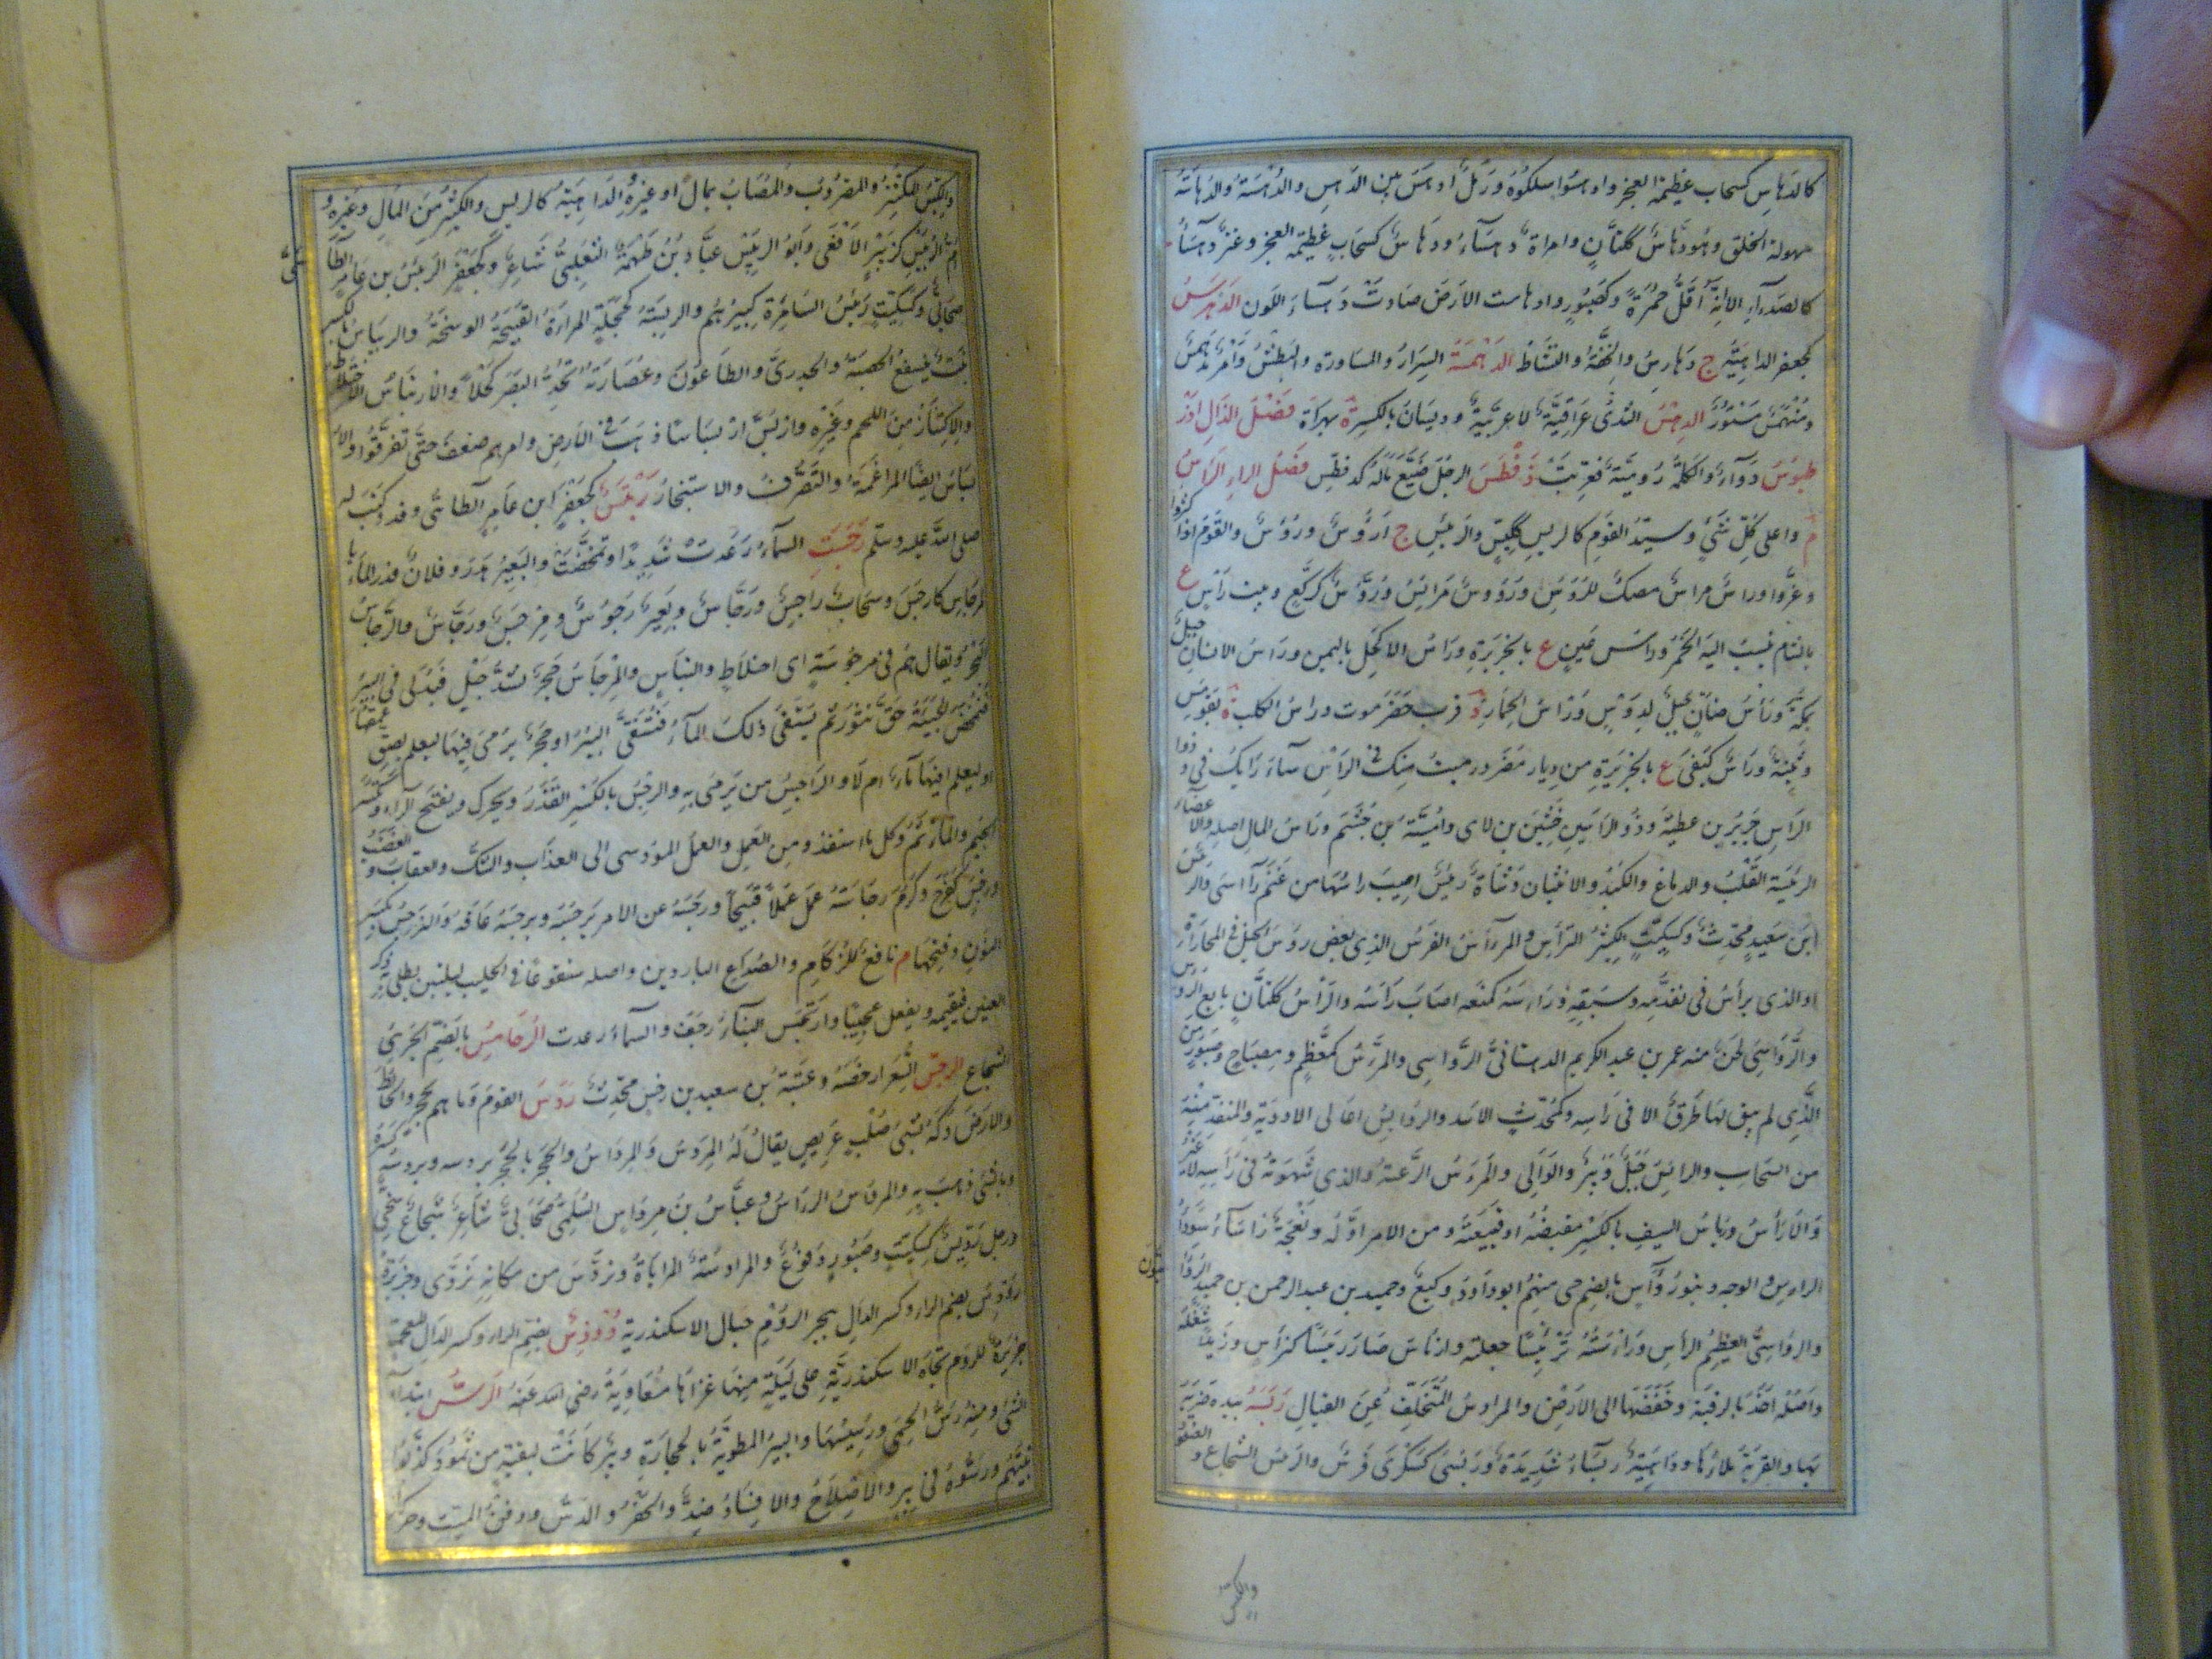 كالدهاس كسحاب عظيمة العجز واوهسوا سلكوه ورمل ادهس بين الدهس والدهسة والدهاسة
سهولة الخلق وهو دهاس ككتان وامراة دهساء ودهاس كسحاب عظيمة العجز وعنز دهساء
كالصدآء الا انه اقل حمرة وكصبور وادهاست الارض صارت دهساء اللون الدهرس
كجعفر الداهية ج دهارس والخفة والنشاط الدهمسة السرار والمساورة والبطش وامر مدهمس
ومنهمس مستور الدحس الثدى عراقية لا عربية وديسان بالكسر ة بهراة فصل الذال اذر
طوس دوآء والكلمة رومية فعربت ذفطس الرجل ضيع ماله كدفطس فصل الراء الراس
م واعلى كل شىء وسيد القوم كالريس ككيس والرئيس ج ارؤس ورؤس والقوم اذا كثروا
وعزوا وراس مراس مصك للرؤس ورؤوس مرائس ورؤس كركع وبيت راس ع
بالشام ينسب اليه الخمر وراس عين ع بالجزيرة وراس الاكحل باليمن وراس الانسان جبل
بمكة وراس ضان جبل لدوس وراس الحمار د قرب حضرموت وراس الكلب ة بقومس
وثنية وراس كيفى ع بالجزيرة من ديار مضر ورميت منك فى الراس سآء رايك فى وذو
الراس جرير بن عطية وذو الراسين خشين بن لاى وامية بن جشم وراس المال اصله والاعضاء
الرئيسة القلب والدماغ والكبد والانثيان وشاة رئيس اصيب راسها من غنم رآسى والرئيس
ابن سعيد محدث وكسكيت الكثير الترأس والمرآس الفرس الذى يعض رؤس الخيل فى المجاراة
او الذى يرأس فى تقدمه وسبقه وراسه كمنعه اصاب راسه والرآس ككتان بايع الرؤس
والرواسى لحن منه عمر بن عبد الكريم الدهستانى الرواسى والمرأس كمعظم ومصباح وصبور من
الذى لم يبق لها طرق الا فى راسه وكمحدث الاسد والروايس اعالى الاودية والمتقدمة
من السحاب والرائس جبل وبير والوالى والمرءس الرعية والذى شهوته فى راسه لا غير
والارأس ورئاس السيف بالكسر مقبضه او قبيعته ومن الامر اوله ونعجة راساء سوداء
الراس والوجه وبنو رؤآس بالضم حى منهم ابو داود وكيع وحميد بن عبد الرحمن بن حميد الرؤاسيون
والرواسى العظيم الرأس وراسته ترئيسا جعلته وارتاس صار رئيسا كترأس وزيدا شغله
واصله اخذ بالرقبة وخفضها الى الارض والمراوس المتخلف عن القتال ربسه بيده ضربه
بها والقربة ملاها وداهية ربساء شديدة وربسى كسكرى فرس والربس الشجاع والعنقود
والكبس
والكبس المكتنز والمضروب والمصاب بمال او غيره والداهية كالريس والكثير من المال وغيره و
ام الربيس كزبير الافعى وابو الربيس عباد بن طهمة الثعلبى شاعر وكجعفر الربتس بن عامر الطائى
صحابى وكسكيت ربيس السامرة كبيرهم والربسة كخجلة المراة القبيحة الوسخة والريباس بالكسر
نبت ينفع الحصبة والجدرى والطاعون وعصارته تحد البصر كحلا والارتباس الاختلاط
والاكتناز من اللحم وغيره واربس اربساسا ذهب فى الارض وامرهم ضعف حتى تفرقوا والار
بساس ايضا المراغمة والتصرف والاستيخار ربتس كجعفر ابن عامر الطائى وفد وكتب له
صلى الله عليه وسلم رجست السمآء رعدت شديدا وتمخضت والبعير هدر وفلان قدر المآء با
لمرجاس كارجس وسحاب راجس ورجاس وبعير رجوس ومرجس ورجاس والرجاس
البحر ويقال هم فى مرجوسة اى اختلاط والتباس والمرجاس حجر يشد بحبل فيدلى فى البير
فتمخض الحمئة حتى تثور ثم يستقى ذلك المآء فتنقى البير او حجر يرمى فيها ليعلم بصوته عمقها
او ليعلم افيها مآء ام لا والراجس من يرمى به والرجس بالكسر القذر ويحرك ويفتح الراء وتكسر
الجيم والمأثم وكل ما استقذر من العمل والعمل المودى الى العذاب والشك والعقاب والغضب
ورجس كفرح وكرم رجاسة عمل عملا قبيحا ورجسه عن الامر يرجسه ويرجسه عاقه والنرجس بكسر
النون وفتحها م نافع للزكام والصداع الباردين واصله منقوعا فى الحليب ليلتين يطلى به ذكر
العنين فيقيمه ويفعل عجيبا وارتجس البناء رجف والسمآء رعدت الرحامس بالضم الجرئ
الشجاع الرخس السعر ارخصه وعتبة بن سعيد بن رخس محدث ردس القوم رماهم بحجر والحائط
والارض دكه بشىء صلب عريض يقال له المردس والمرداس والحجر بالحجر يردسه ويردسه كسره
وبالشىء ذهب به والمرداس الراس وعباس بن مرداس السلمى صحابى شاعر شجاع سخى
ورجل رديس كسكيت وصبور دفوع والمرادسة المراباة وتردس من مكانه تردى وجزيرة
رودس بضم الراء وكسر الدال ببحر الروم حيال الاسكندرية روذس بضم الراء وكسر الذال المعجمة
جزيرة للروم تجاه الاسكندرية على ليلة منها غزاها معاوية رضى الله عنه الرس ابتداء
الشىء ومنه رس الحمى ورسيسها والبير المطوية بالحجارة وبير كانت لبقية من ثمود كذبوا
نبيهم ورسوه فى بير والاصلاح والافساد ضد والحفر والدس ودفن الميت وحزن